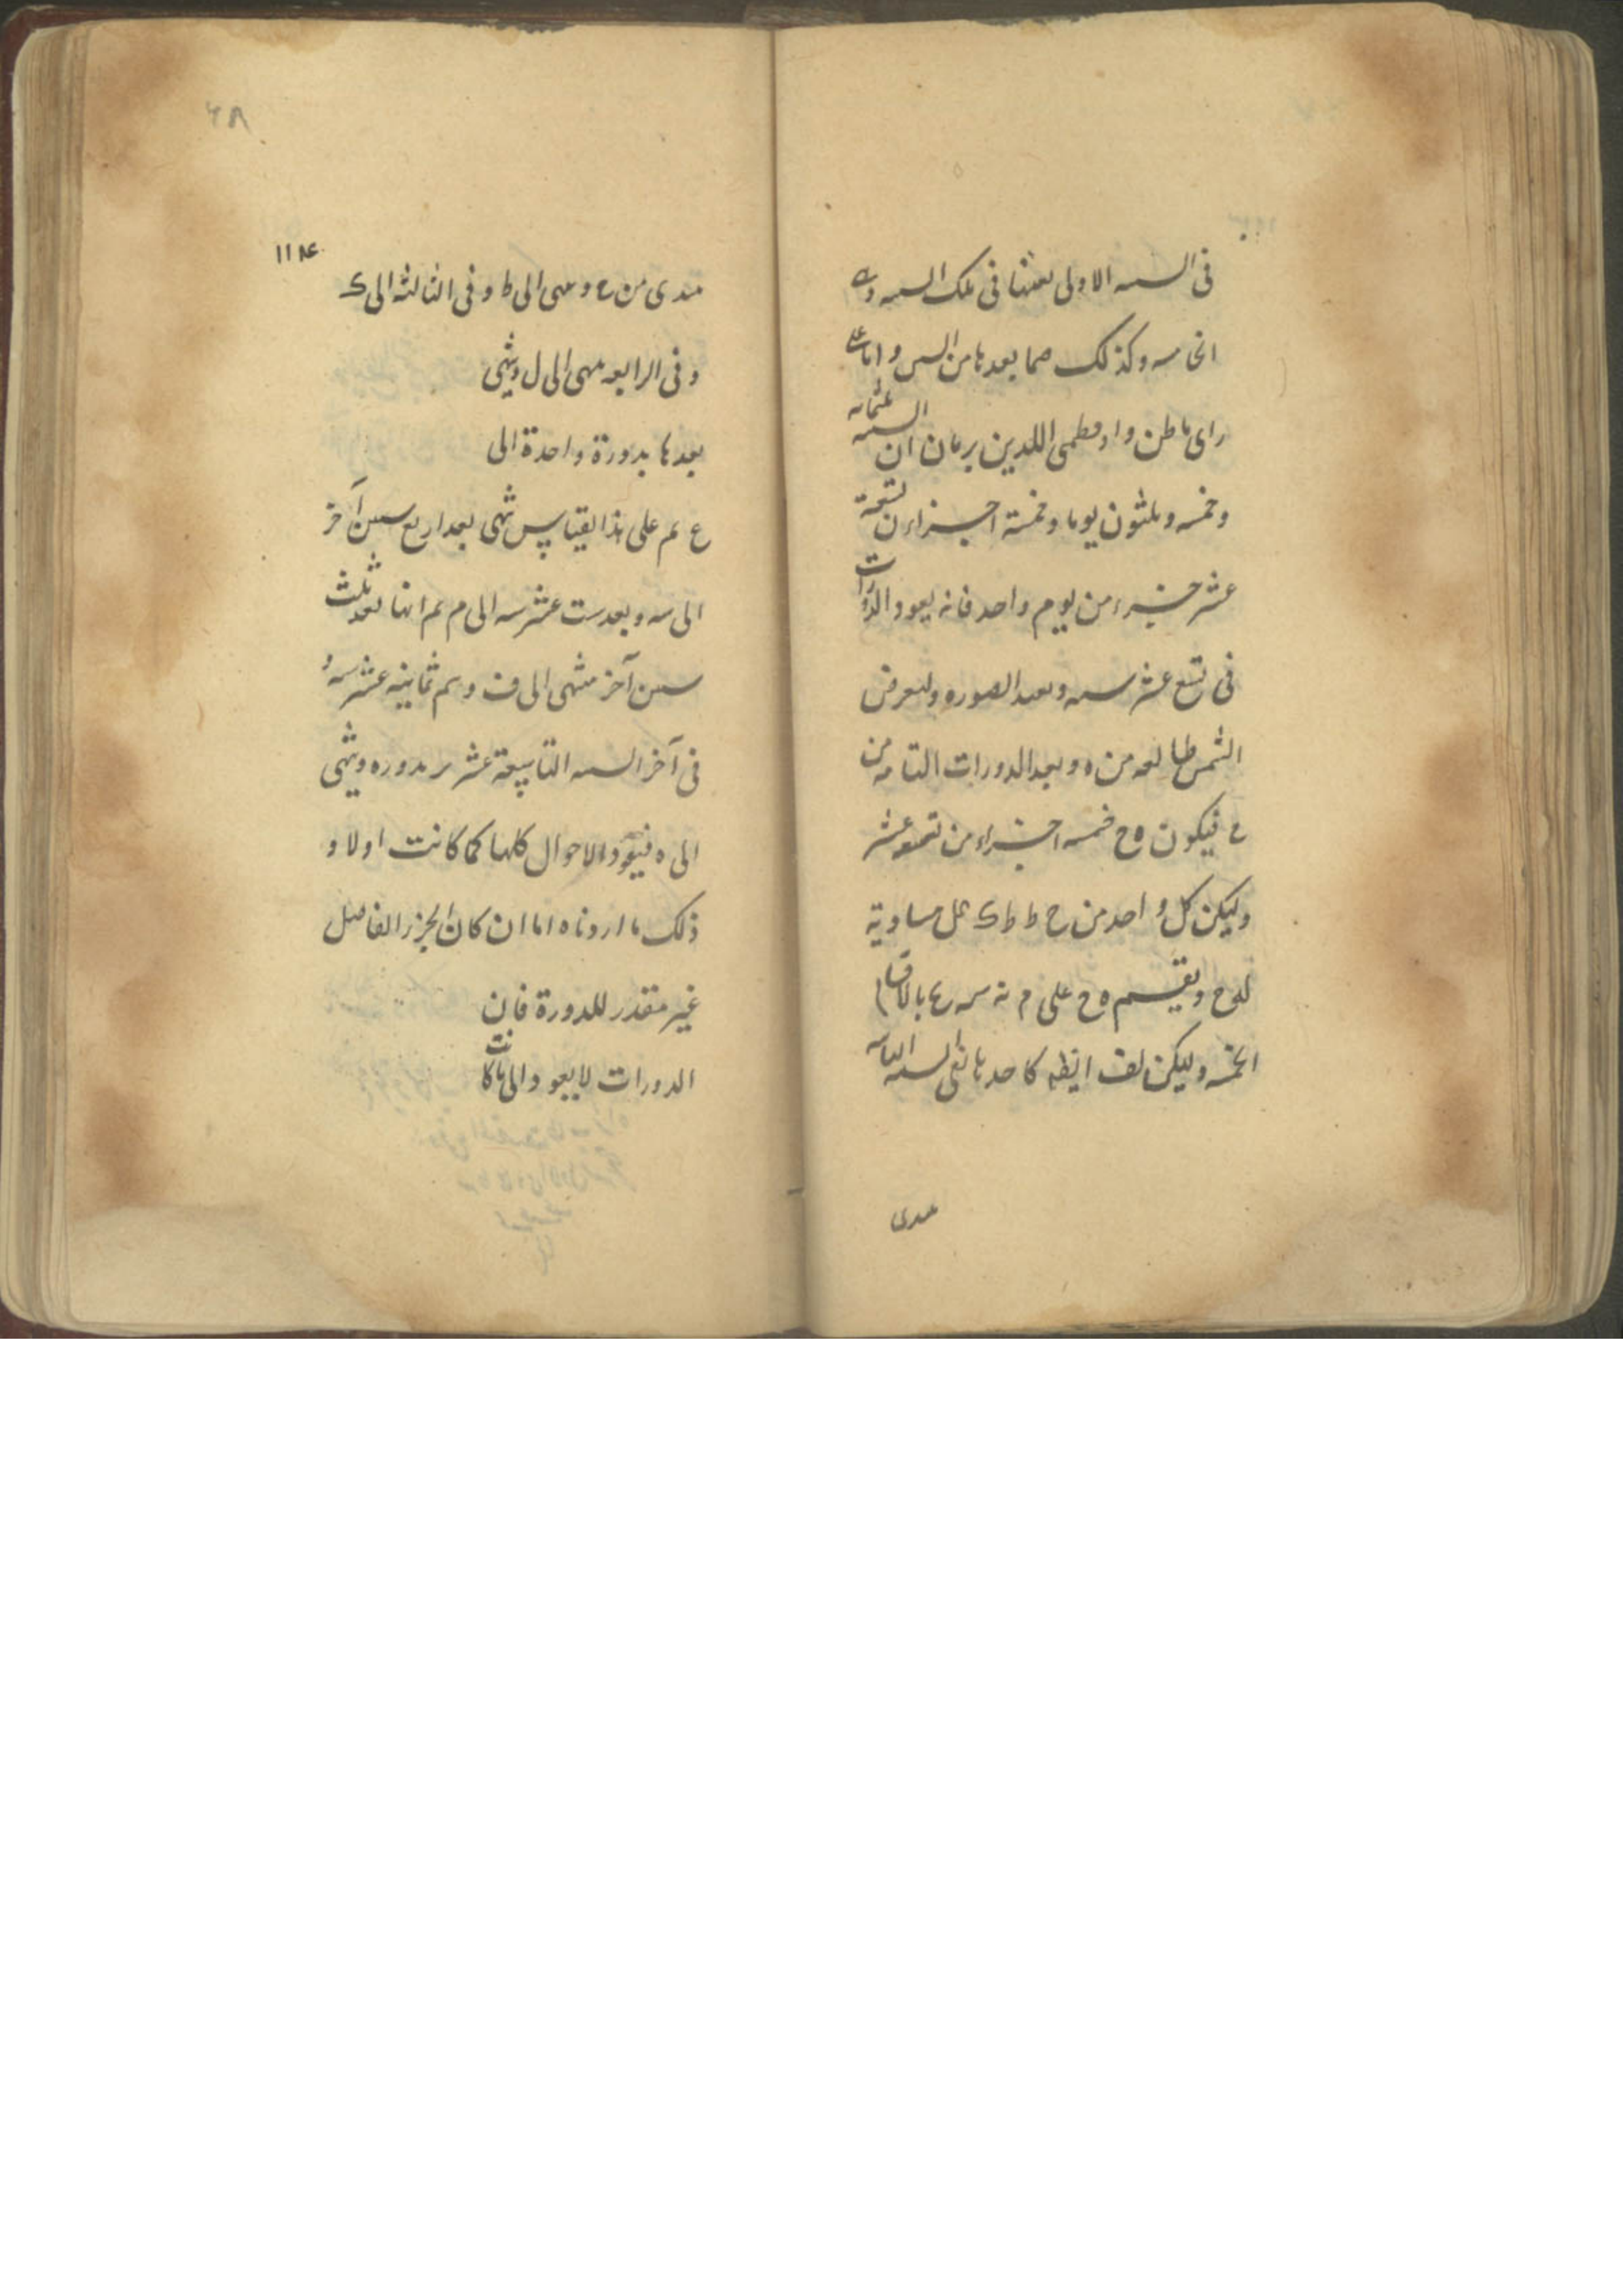 فى السنه الاولى بعينها فى تلك السنه وفى
الخامسه وكذلك فيما بعدها من السنين واما على
راى ماطن واوقطمن اللذين يريان ان السنه ثلثمائه
وخمسه وثلثون يوما وخمسة اجزاء من تسعة
عشر جزءا من يوم واحد فانه يعود الدورات
فى تسع عشر سنه ونعيد الصوره ولنعرض
الشمس طالعه من ه وبعد الدورات التامه من
ح فيكون ه ح خمسه اجزاء من تسعه عشر
وليكن كل واحد من ح ط ط ك ك ل مساوية
له ح ويقسم ه ح على م نه سه ع بالاقسام
الخمسه وليكن لف ايضا كاحدها ففى السنه الثانيه
عدى
۶۸
۱۱۸۴
مبتدى من ح وينتهى الى ط وفى الثالثه الى ك
وفى الرابعه ينتهى الى ل وينتهى
بعدها بدورة واحدة الى
ع ثم على هذا القياس ينتهى بعد اربع سنين آخر
الى سه وبعد ست عشر سنه الى م ثم انها بعد ثلث
سنين آخر ينتهى الى ف ويتم ثمانيه عشر سنه و
فى آخر السنه التاسعة عشر بدوره وينتهى
الى ه فيعود الاحوال كلها كما كانت اولا و
ذلك ما اردناه اما ان كان الجزء الفاضل
غير مقدر للدورة فان
الدورات لا يعود الى ما كانت